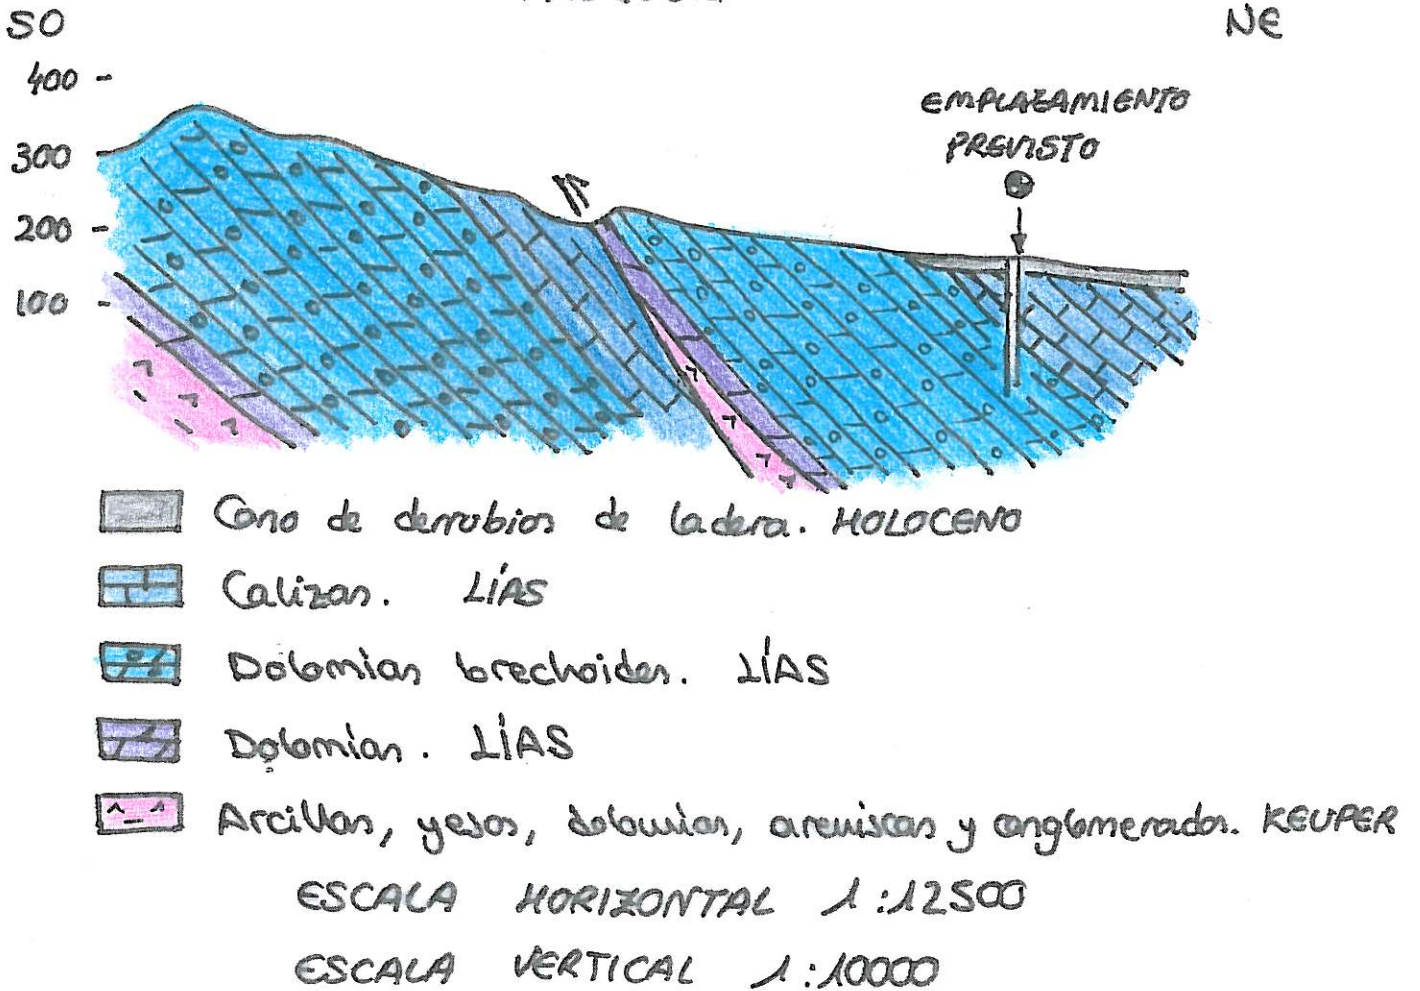 SO
NE
400 -
300
200 -
100 -
EMPLAZAMIENTO
PREVISTO
Cono de derrubios de ladera. HOLOCENO
Calizas. LÍAS
Dolomías brechoides. LÍAS
Dolomías. LÍAS
Arcillas, yesos, dolomías, areniscas y conglomerados. KEUPER
ESCALA HORIZONTAL 1:12500
ESCALA VERTICAL 1:10000